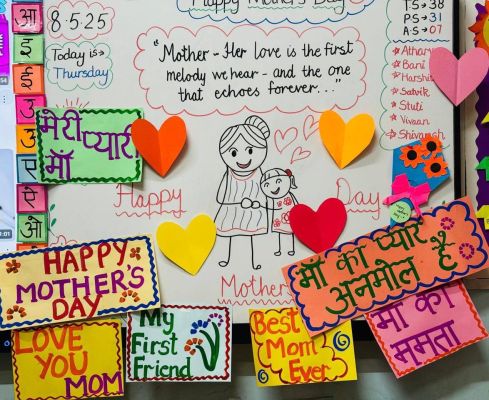 Happy Mother's Day
8-5-25
Today is →
Thursday
T.S → 38
P.S → 31
A.S → 07
Atharv
Bani
Harshit
Satvik
Stuti
Vivaan
Shivansh
"Mother - Her love is the first
melody we hear - and the one
that echoes forever..."
मेरी प्यारी
माँ
Happy
Day
Mother's
HAPPY
MOTHER'S
DAY
माँ का प्यार
अनमोल है
LOVE
YOU
MOM
My
First
Friend
Best
Mom
Ever
माँ की
ममता